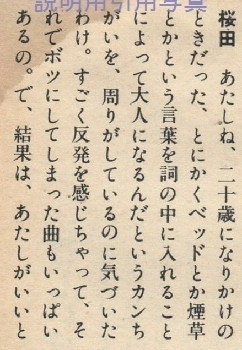 説明用引用写真
桜田　あたしね、二十歳になりかけの
ときだった、とにかくベッドとか煙草
とかという言葉を詞の中に入れること
によって大人になるんだというカンち
がいを、周りがしているのに気づいた
わけ。すごく反発を感じちゃって、そ
れでボツにしてしまった曲もいっぱい
あるの。で、結果は、あたしがいいと